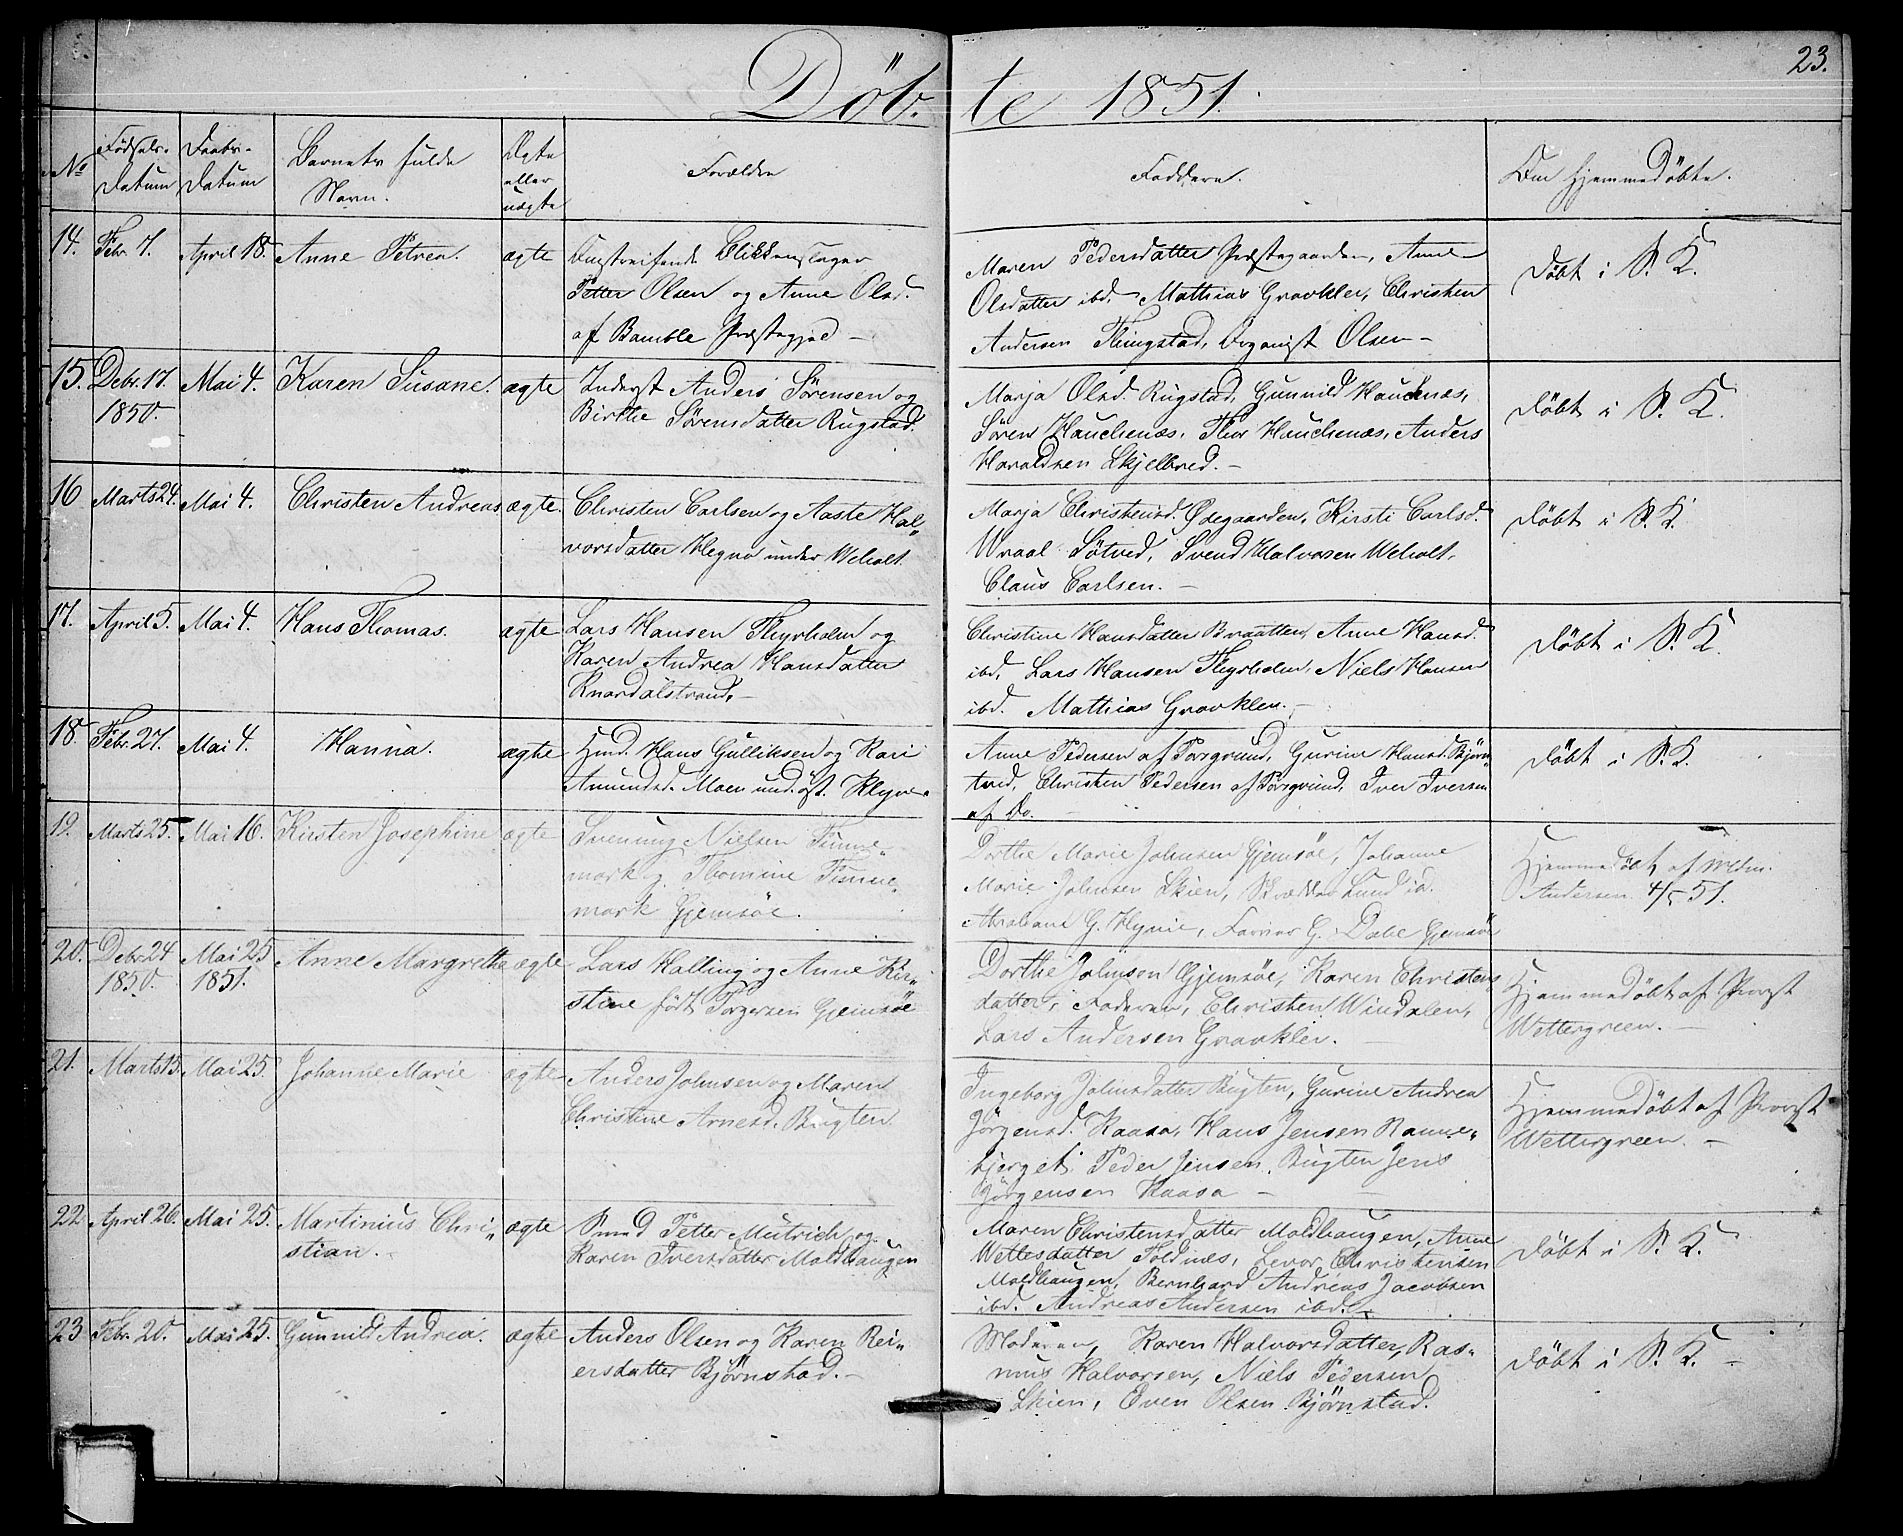 23.
Döb- te 1851.
No
Fødsels-
datum
Daabs-
datum
Barnets fulde
Navn.
Ægte
eller
uægte
Forældre
Faddere.
Om hjemmedöbte.
14. Febr 7. April 18. Anne Petrea. ægte
Omstreifende Blikkenslager
Petter Olsen og Anne Olsd.
af Bamble Præstegjæld –
Maren Pedersdatter Præstegaarden, Anne
Olsdatter ibd. Mathias Gravkler, Christen
Andersen Thingstad, Organist Olsen –
döbt i S. K.
15. Debr. 17. Mai 4. Karen Susane. ægte
1850.
Inderst Anders Sørensen og
Birthe Sørensdatter Rugstad.
Marja Olsd. Rugstad, Gunnild Hauchnæs,
Sören Hauchenæs, Thor Hauchenæs, Anders
Haraldsen Skjelbred. –
döbt i S. K.
16 Marts 24. Mai 4. Christen Andreas ægte.
Christen Carlsen og Aaste Hal„
vorsdatter Hegna under Weholt.
Marja Christensd. Ødegaarden, Kirsti Carlsd.
Wraal Søtved, Svend Halvorsen Weholt,
Claus Carlsen. –
döbt i S. K.
17. April 5. Mai 4. Hans Thomas. ægte
Lars Hansen Thyrholm og
Karen Andrea Hansdatter
Knardalstrand. –
Christine Hansdatter Braatten, Anne Hansd.
ibd. Lars Hansen Thyrholm, Niels Hansen
ibd. Mathias Gravklev. –
döbt i S. K.
18. Febr. 27. Mai 4. Hanna. ægte
Hmd. Hans Gulliksen og Kari
Amundsd. Moen und. öst. Klyve.
Anne Pedersen af Porsgrund, Gurine Hansd. Björn„
tved, Christen Pedersen af Porsgrund, Iver Iversen
af Do. –
döbt i S. K.
19. Marts 25. Mai 16. Kirsten Josephine ægte
Svenung Nielsen Finne„
mark og Thomine Finne„
mark Gjemsöe.
Dorthe Marie Johnsen Gjemsöe, Johanne
Marie Johnsen Skien, Skrædder Lund ibd.
Abraham G. Hynie, Farver G. Dahl Gjemsöe
Hjemmedöbt af Mdm.
Andersen 4/5 51.
20. Debr 24 Mai 25 Anne Margrethe ægte
1850. 1851.
Lars Halling og Anne Kir„
stine født Torgersen Gjemsöe
Dorthe Johnson Gjemsöe, Karen Christens
datter, Faderen, Christen Windalen,
Lars Andersen Gravklev. –
Hjemmedöbt af Provst
Wettergreen. –
21. Marts 15. Mai 25. Johanne Marie ægte
Anders Johnsen og Maren
Christine Arnesd. Bugten
Ingeborg Johnsdatter Bugten, Gurine Andrea
Jörgensd. Raasa, Hans Jensen Ranne„
bjerget, Peder Jensen Bugten Jens
Jörgensen Raasa –
Hjemmedöbt af Provst
Wettergreen. –
22. April 26. Mai 25. Martinius Chri„ ægte
stian.
Smed Petter Mutrich og
Karen Iversdatter Moldhaugen
Maren Christensdatter Moldhaugen, Anne
Wettesdatter Foldnæs, Levor Christensen
Moldhaugen, Bernhard Andreas Jacobsen
ibd. Andreas Andersen ibd. –
döbt i S. K.
23 Febr. 20. Mai 25. Gunnild Andrea. ægte
Anders Olsen og Karen Rei„
ersdatter Björnstad. –
Moderen, Karen Halvorsdatter, Ras„
mus Halvorsen, Niels Pedersen
Skien, Even Olsen Björnstad.
döbt i S. K. –